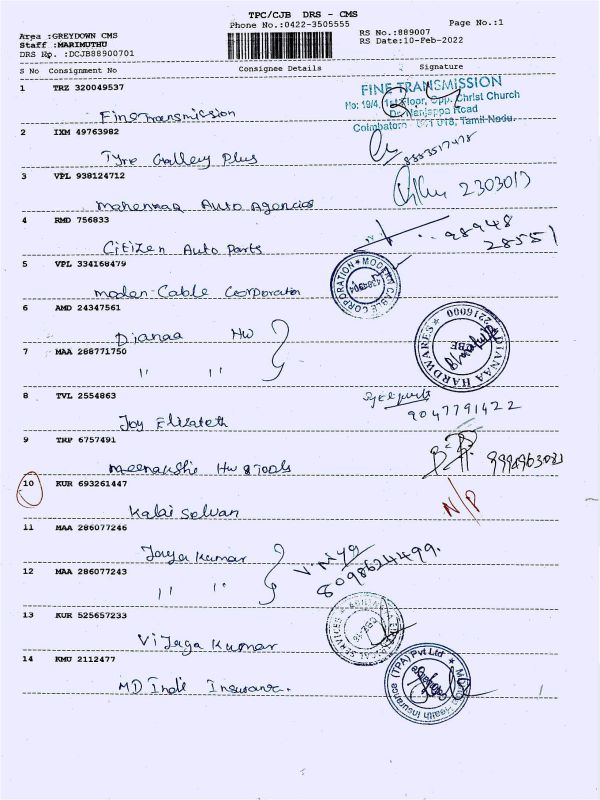 TPC/CJB DRS - CMS
Phone No.:0422-3505555
Page No.:1
Area :GREYDOWN CMS
Staff :MARIMUTHU
DRS No. :DCJB88900701
RS No.:889007
RS Date:10-Feb-2022
S No Consignment No Consignee Details Signature
1 TRZ 320049537
Fine Transmission
FINE TRANSMISSION
No: 19/4, 1st Floor, Opp. Christ Church
Dr. Nanjappa Road
Coimbatore - 641 018, Tamil Nadu.
2 IXM 49763982
Tyre Galley Plus
3 VPL 938124712
Auto Agencies
2303017
4 RMD 756833
Citizen Auto Parts
98948
28551
5 VPL 334168479
Moden Cable Corporation
MODERN CABLE CORPORATION
6 AMD 24347561
Dianaa Hw
7 MAA 288771750
" "
DIANAA HARDWARES
2216000
CBE
8 TVL 2554863
Joy Elizabeth
9047791422
9 TRP 6757491
Meenakshi Hw & Tools
10 KUR 693261447
Kalai Selvan
N/P
11 MAA 286077246
Jaya Kumar
12 MAA 286077243
" "
8098624499.
13 KUR 525657233
Vijaya Kumar
SERVICES
14 KMU 2112477
MD Indi Insurance.
Health Insurance (TPA) Pvt Ltd